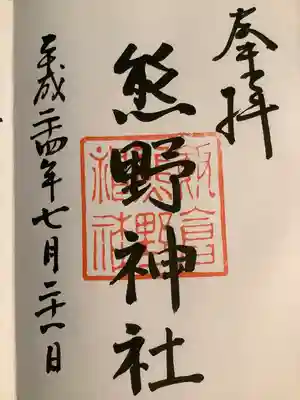 奉拝
熊野神社
平成二四年七月二十一日
飯倉
熊野
神社